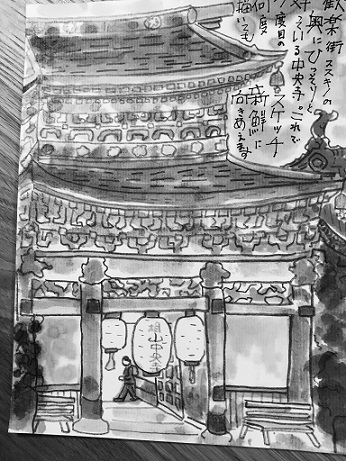 歓楽街ススキノの
奥にひっそりと
っている中央寺。これで
度目のスケッチ
何度
描いても新鮮に
向きあえます
山中央寺